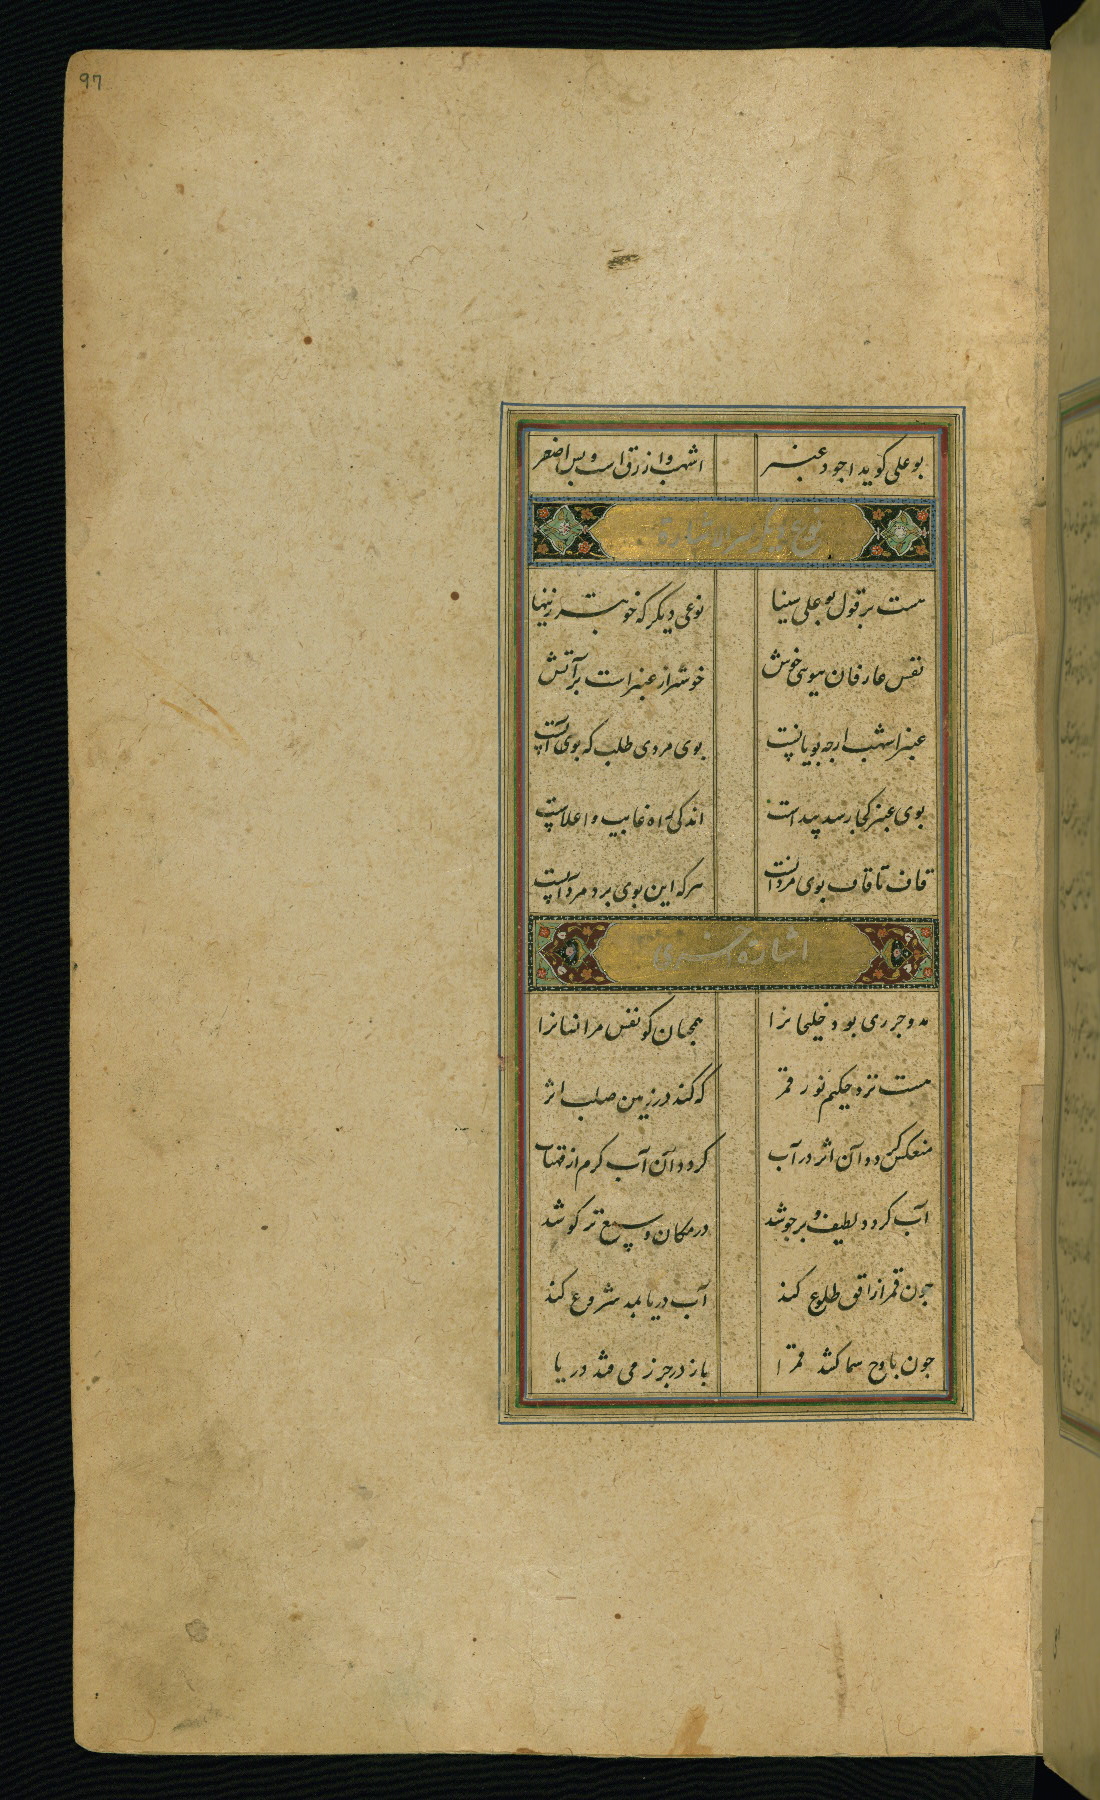 97
بو علی کوید اجود عنبر اشهب و ازرق است و پس اصفر
نوع دیگر
هست بر قول بو علی سینا نوعی دیکر که خوبتر زینها
نفس عارفان بیوسی خوش خوشتر از عنبر است بر آتش
عنبر اشهب ارجه بویا نیست بوی مردی طلب که بوی آنست
بوی عنبر کجا رسد پیداست اندکی راه غایب و اعلاست
قاف تا قاف بوی مردانست هر که این بوی برد مرد آنست
اشارة خسروی
مد و جزری بود خلیجانرا همجنان کو نفس مر انسانرا
هست نزد حکیم نور قمر که کند در زمین صلب اثر
منعکس کردد آن اثر در آب کردد آن آب کرم از
آب کردد لطیف و بر جوشد در مکان وسیع تر کوشد
جون قمر از افق طلوع کند آب دریا بمد شروع کند
جون باوج سما کشد قمرا باز در جزر می فتد دریا